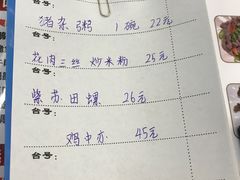 猪杂粥 1碗 22元
台号：
花肉三丝炒米粉 25元
台号：
紫苏田螺 26元
台号：
鸡中亦 45元
台号：